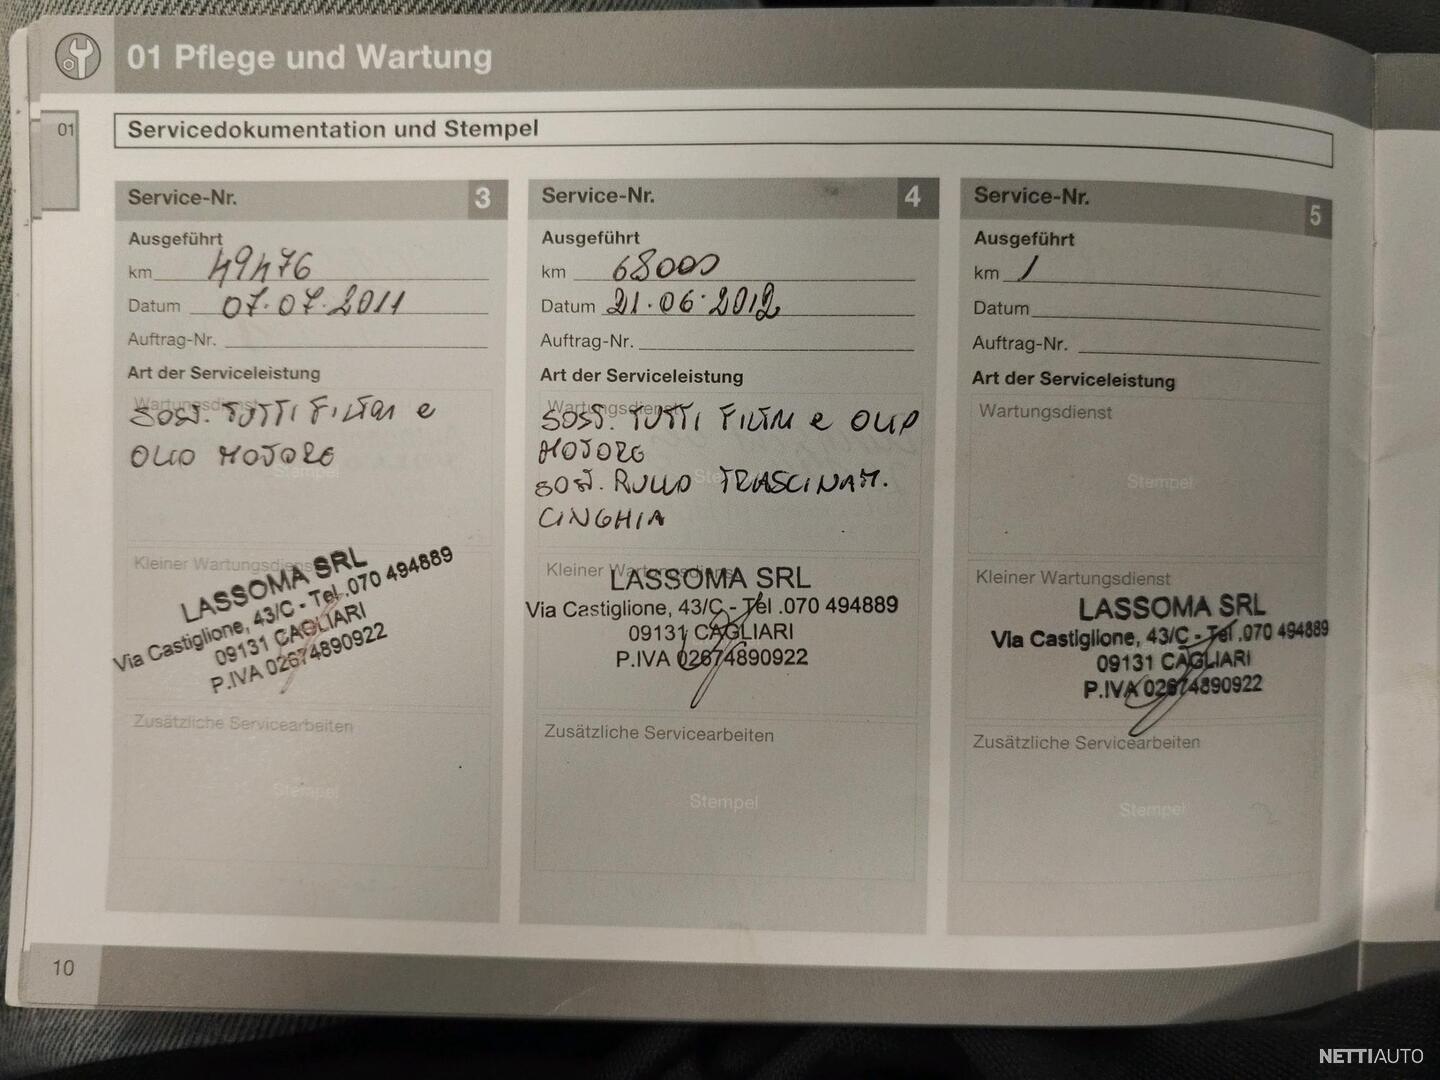 01 Pflege und Wartung
01
Servicedokumentation und Stempel
Service-Nr. 3
Ausgeführt
km 49476
Datum 07.07.2011
Auftrag-Nr.
Art der Serviceleistung
Wartungsdienst
SOST. TUTTI FILTRI e
OLIO MOTORE
Stempel
Kleiner Wartungsdienst
LASSOMA SRL
Via Castiglione, 43/C - Tel .070 494889
09131 CAGLIARI
P.IVA 02674890922
Zusätzliche Servicearbeiten
Stempel
Service-Nr. 4
Ausgeführt
km 68000
Datum 21.06.2012
Auftrag-Nr.
Art der Serviceleistung
Wartungsdienst
SOST. TUTTI FILTRI e OLIO
MOTORE
Stempel
SOST. RULLO TRASCINAM.
CINGHIA
Kleiner Wartungsdienst
LASSOMA SRL
Via Castiglione, 43/C - Tel .070 494889
09131 CAGLIARI
P.IVA 02674890922
Zusätzliche Servicearbeiten
Stempel
Service-Nr. 5
Ausgeführt
km /
Datum
Auftrag-Nr.
Art der Serviceleistung
Wartungsdienst
Stempel
Kleiner Wartungsdienst
LASSOMA SRL
Via Castiglione, 43/C - Tel .070 494889
09131 CAGLIARI
P.IVA 02674890922
Zusätzliche Servicearbeiten
Stempel
10
NETTIAUTO